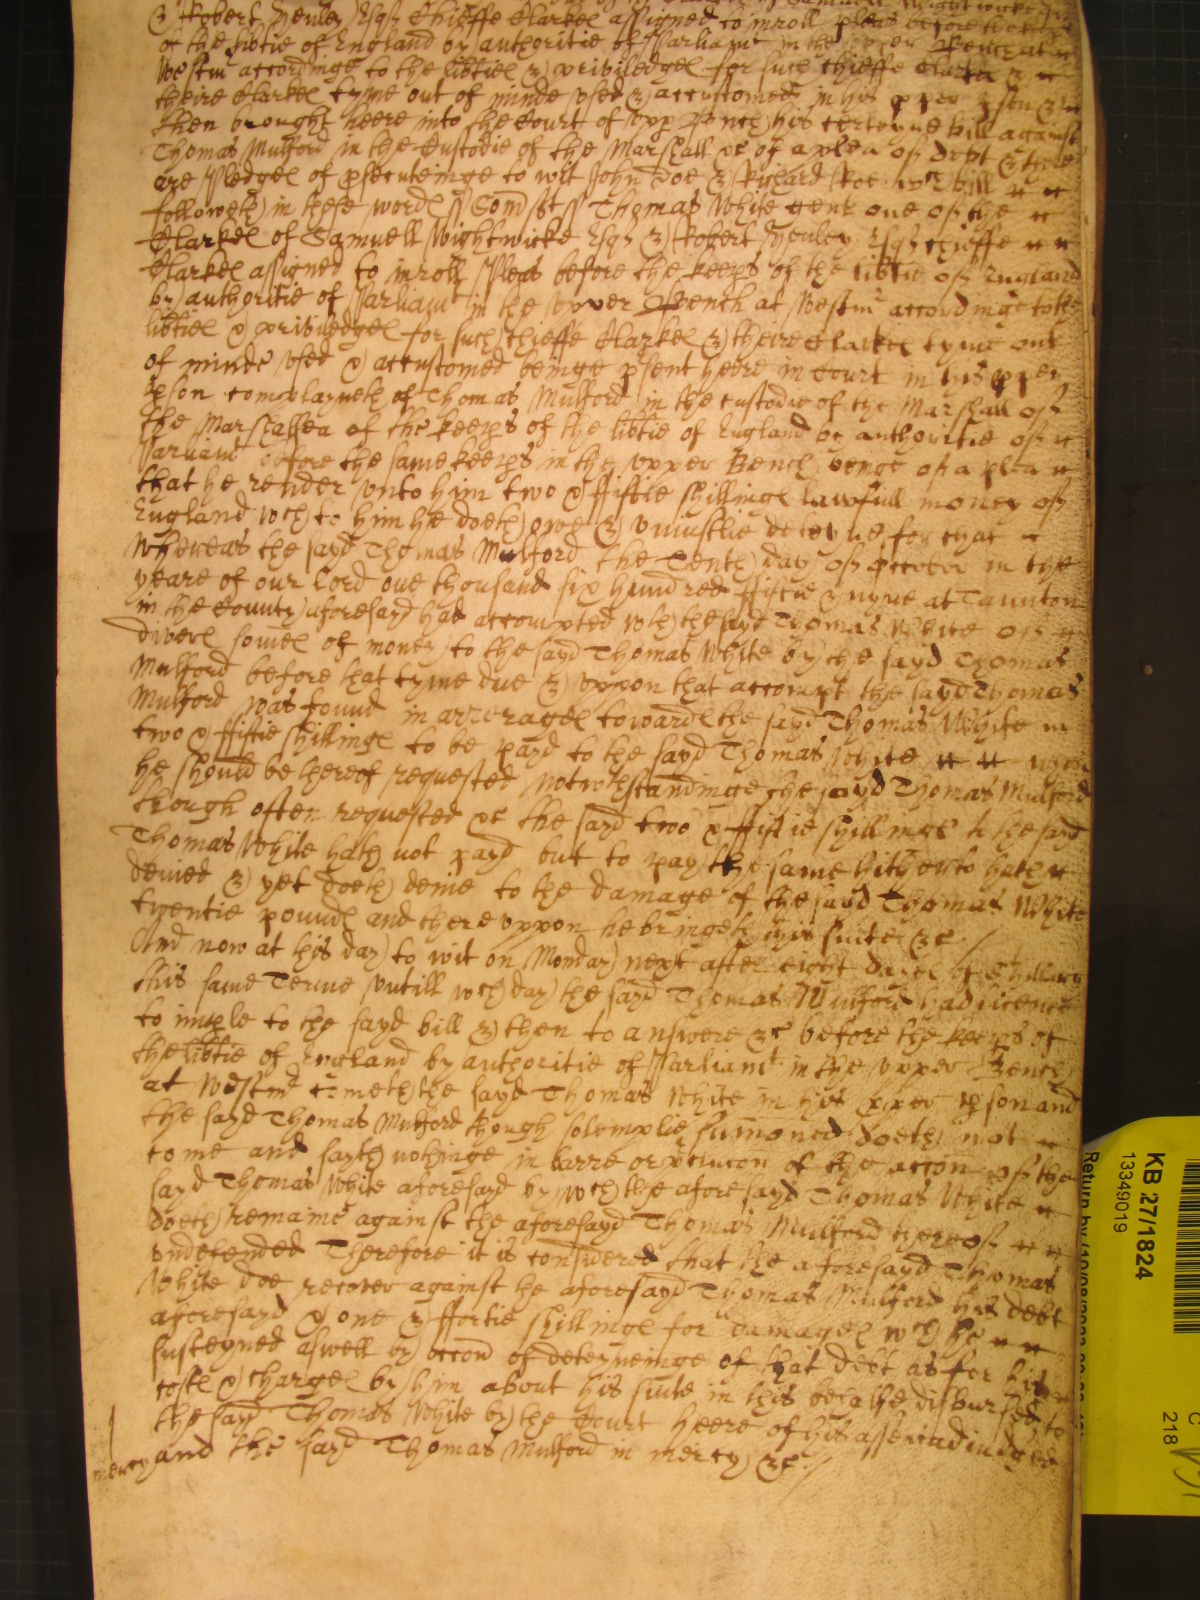 & Robert Henley Esqr Chieffe Clarkes assigned to inroll pleas before the keeps
of the libtie of England by authoritie of Parliamt in the upper Bench at
Westmr accordinge to the libties & priviledges for such chieffe Clarkes &
theire Clarkes tyme out of minde used & accustomed in his pper pson &
then brought heere into the Court of upp Bench his certeyne bill against
Thomas Mulford in the Custodie of the Marshall &c of a plea of debt & there
are Pledges of psecuteinge to wit John Doe & Richard Roe wch bill
followeth in these words ss Somst ss Thomas White gent one of the
Clarkes of Samuell Wightwicke Esqr & Robert Henley Esqr chieffe
Clarkes assigned to inroll Pleas before the keeps of the libtie of England
by authoritie of Parliamt in the upper Bench at Westmr accordinge to the
libties & priviledges for such chieffe Clarkes & theire Clarkes tyme out
of minde used & accustomed beinge psent heere in Court in his pper
pson complayneth of Thomas Mulford in the custodie of the Marshall of
the Marshalsea of the keeps of the libtie of England by authoritie of
Parliamt before the same keeps in the upper Bench beinge of a plea
that he render unto him two & fiftie shillinges lawfull money of
England wch to him he doeth owe & uniustlie deteyne for that
Whereas the sayd Thomas Mulford the Tenth day of October in the
yeare of our Lord one thousand six hundred fiftie & nyne at Taunton
in the County aforesayd had accompted wth the sayd Thomas White of
divers somes of money to the sayd Thomas White by the sayd Thomas
Mulford before that tyme due & uppon that accompt the sayd Thomas
Mulford was found in arrerages towards the sayd Thomas White in
two & fiftie shillinges to be payd to the sayd Thomas White when
he should be thereof requested notwthstandinge the sayd Thomas Mulford
though often requested &c the sayd two & fiftie shillinges to the sayd
Thomas White hath not payd but to pay the same hitherto hath
denied & yet doeth denie to the damage of the sayd Thomas White
twentie pounds and thereuppon he bringeth this suite &c
And now at this day to wit on Monday next after eight dayes of St Hillary
this same Terme untill wch day the sayd Thomas Mulford had licence
to imple to the sayd bill & then to answere &c before the keeps of
the libtie of England by authoritie of Parliamt in the upper Bench
at Westmr cometh the sayd Thomas White in his pper pson and
the sayd Thomas Mulford though solemplie sumoned doeth not
come and sayth nothinge in barre or of the accon of the
sayd Thomas White aforesayd by wch the aforesayd Thomas White
doeth remaine against the aforesayd Thomas Mulford thereof
undefended Therefore it is considered that the aforesayd Thomas
White doe recover against he aforesayd Thomas Mulford his debt
aforesayd & one & ffortie shillinges for damages wch he
susteyned aswell by occon of deteyneinge of that debt as for his
costs & charges by him about his suite in this behalfe disbursed to
the sayd Thomas White by the Court heere of his assent adiudged
and the sayd Thomas Mulford in mercy &c
mercy
KB 27/1824
13349019
218